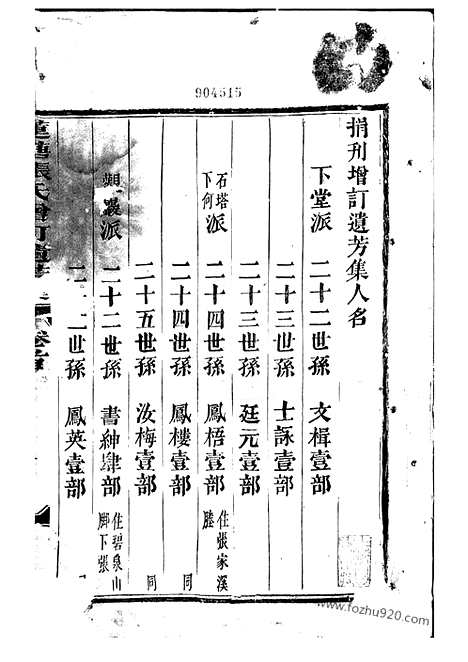 904515
捐刋增訂遺芳集人名
下堂派 二十二世孫 文楫壹部
二十三世孫 士詠壹部
二十三世孫 廷元壹部
石塔下何派 二十四世孫 鳳梧壹部 住張家溪
二十四世孫 鳳樓壹部 同
二十五世孫 汝梅壹部 同
二十二世孫 書紳肆部 住碧泉山脚下張
世孫 鳳英壹部
www.fozhu920.com